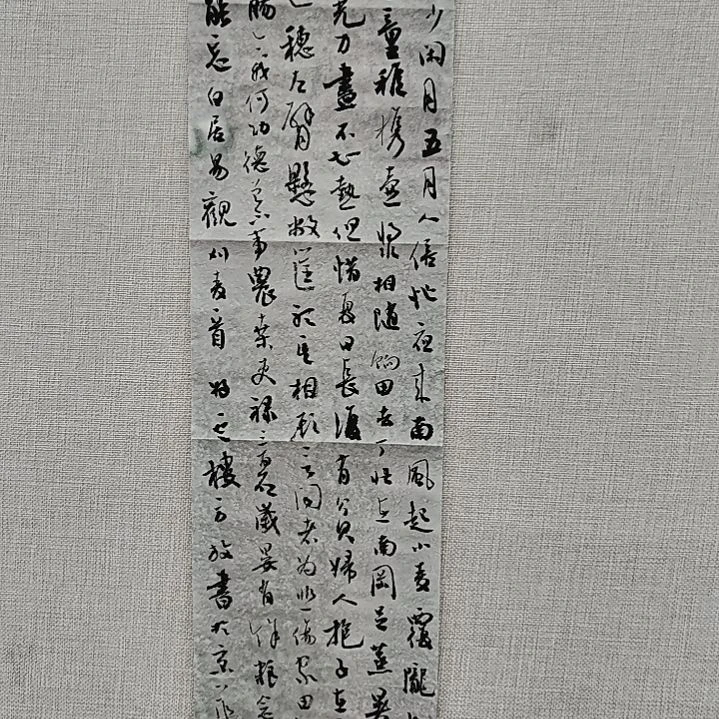 少閑月五月人倍忙夜來南風起小麥覆隴
童稚攜壺漿相隨餉田去丁壯在南岡足蒸暑
光力盡不知熱但惜夏日長復有貧婦人抱子在
穗左臂懸敝筐聽其相顧言聞者為悲傷家田
腸今我何功德曾不事農桑吏祿三百石歲晏有餘糧念
能忘白居易觀刈麥一首樓方放書於京